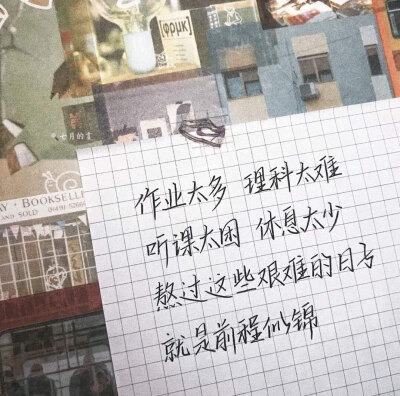 [фрик]
©七月的言
Y·BOOKSELL
AND SOLD
作业太多 理科太难
听课太困 休息太少
熬过这些艰难的日子
就是前程似锦